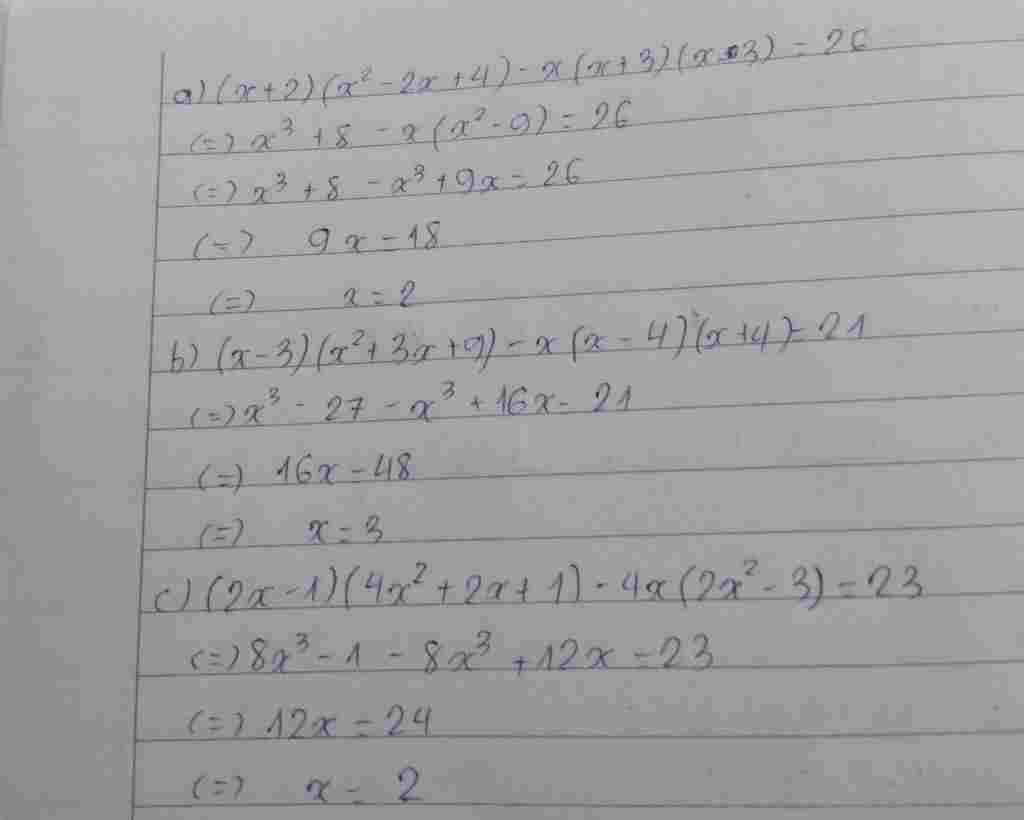 a) (x+2)(x² - 2x + 4) - x(x+3)(x-3) = 26
(=) x³ + 8 - x(x² - 9) = 26
(=) x³ + 8 - x³ + 9x = 26
(=) 9x = 18
(=) x = 2
b) (x-3)(x² + 3x + 9) - x(x-4)(x+4) = 21
(=) x³ - 27 - x³ + 16x = 21
(=) 16x = 48
(=) x = 3
c) (2x-1)(4x² + 2x + 1) - 4x(2x² - 3) = 23
(=) 8x³ - 1 - 8x³ + 12x = 23
(=) 12x = 24
(=) x = 2